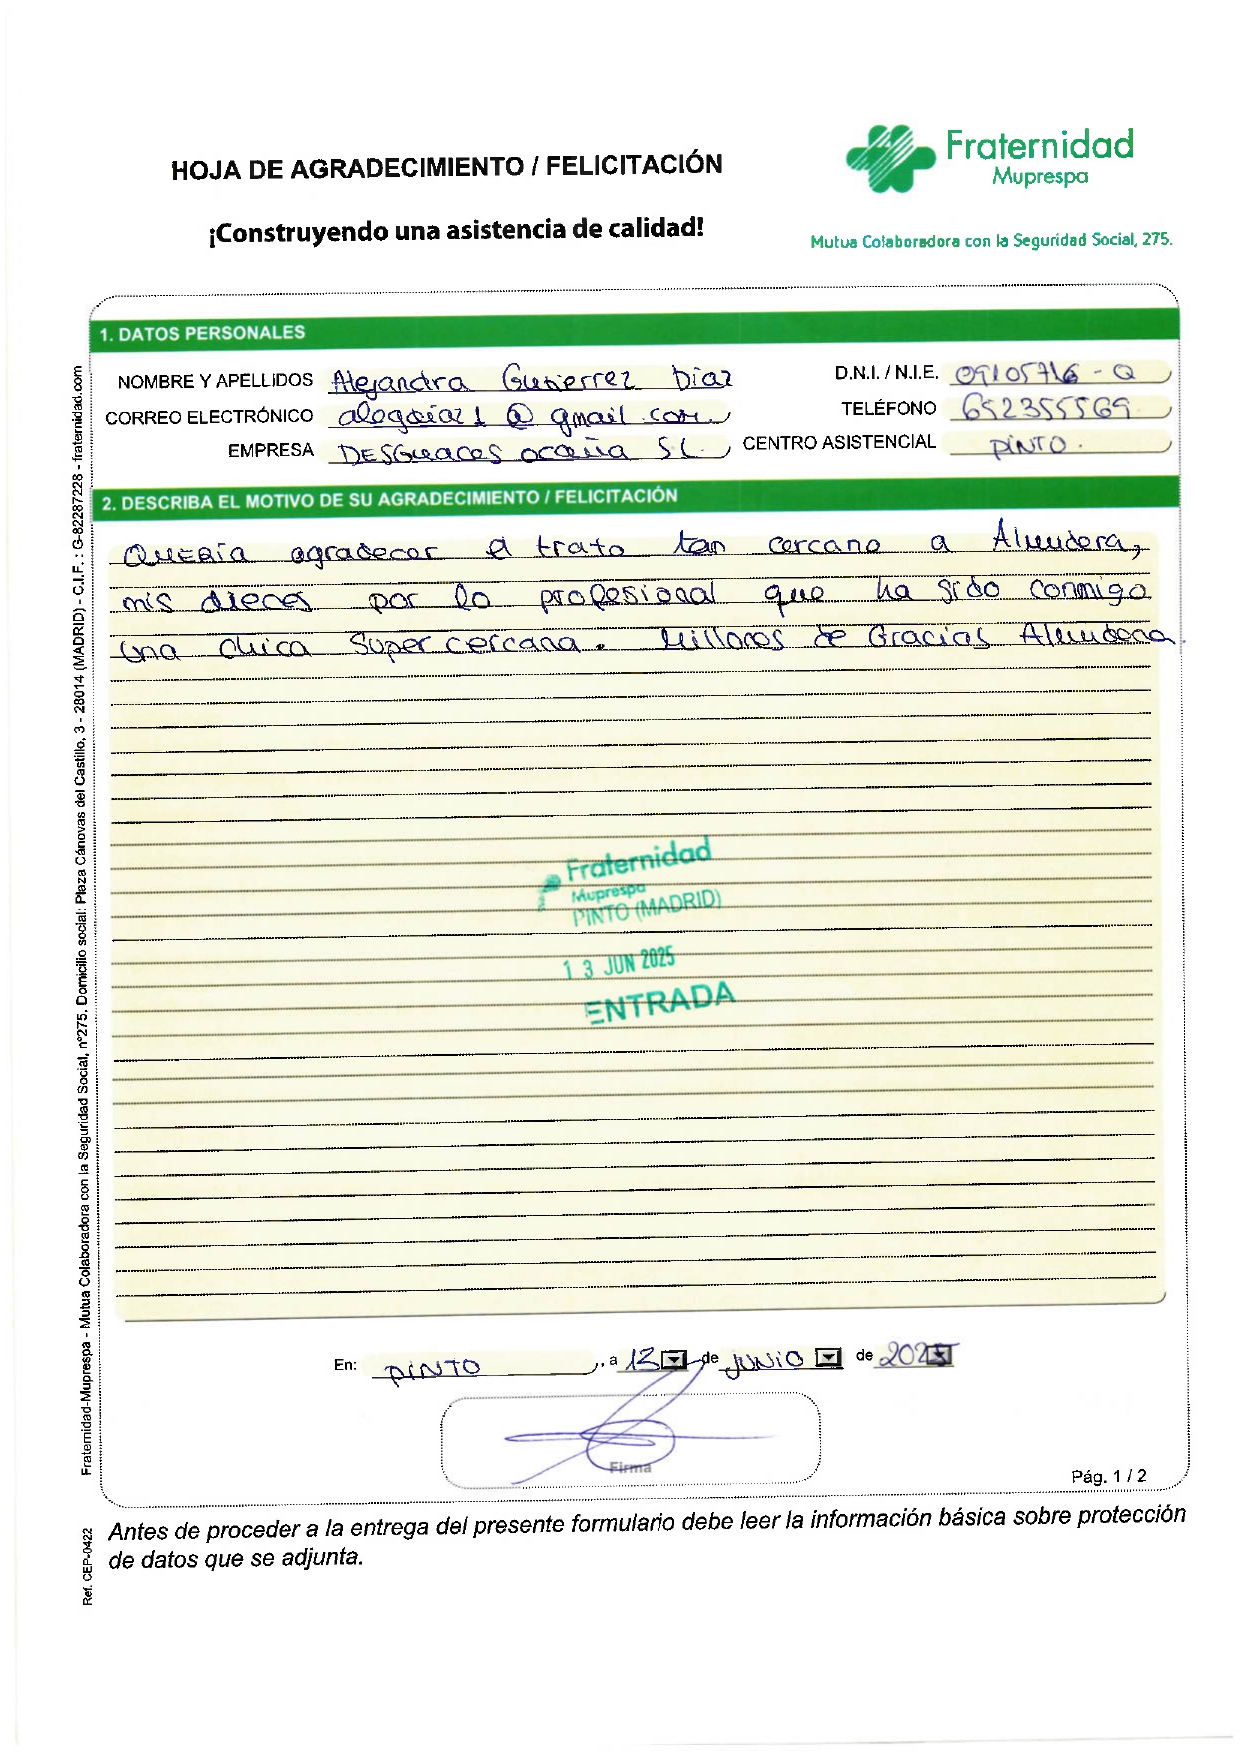 HOJA DE AGRADECIMIENTO / FELICITACIÓN
¡Construyendo una asistencia de calidad!
Fraternidad
Muprespa
Mutua Colaboradora con la Seguridad Social, 275.
1. DATOS PERSONALES
NOMBRE Y APELLIDOS Alejandra Gutierrez Díaz
D.N.I. / N.I.E. 09105716-Q
CORREO ELECTRÓNICO @gmail.com
TELÉFONO 652355569
EMPRESA DESGUACES OCAÑA SL
CENTRO ASISTENCIAL PINTO.
2. DESCRIBA EL MOTIVO DE SU AGRADECIMIENTO / FELICITACIÓN
QUERÍA agradecer el trato tan cercano a Almudena,
mis dieces por lo profesional que ha sido conmigo
una chica super cercana. Millones de Gracias Almudena
Fraternidad
Muprespa
PINTO (MADRID)
13 JUN 2025
ENTRADA
En: PINTO, a 13 de JUNIO de 2025
Firma
Pág. 1 / 2
Antes de proceder a la entrega del presente formulario debe leer la información básica sobre protección
de datos que se adjunta.
Fraternidad-Muprespa - Mutua Colaboradora con la Seguridad Social, nº275. Domicilio social: Plaza Cánovas del Castillo, 3 - 28014 (MADRID) - C.I.F. : G-82287228 - fraternidad.com
Ref. CEP-0422